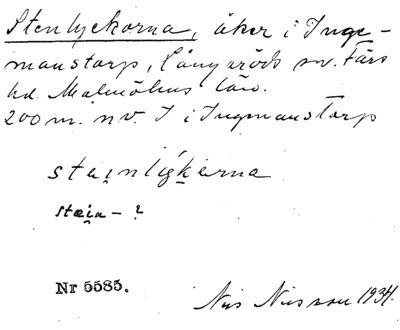 Stenlyckorna, åker i Inge-
manstorp, Långaröds sn. Färs
hd. Malmöhus län.
200 m. nv. I i Ingmanstorp
sta
stæi̯n- ?
Nr 5585.
Nils Nilsson 1934.